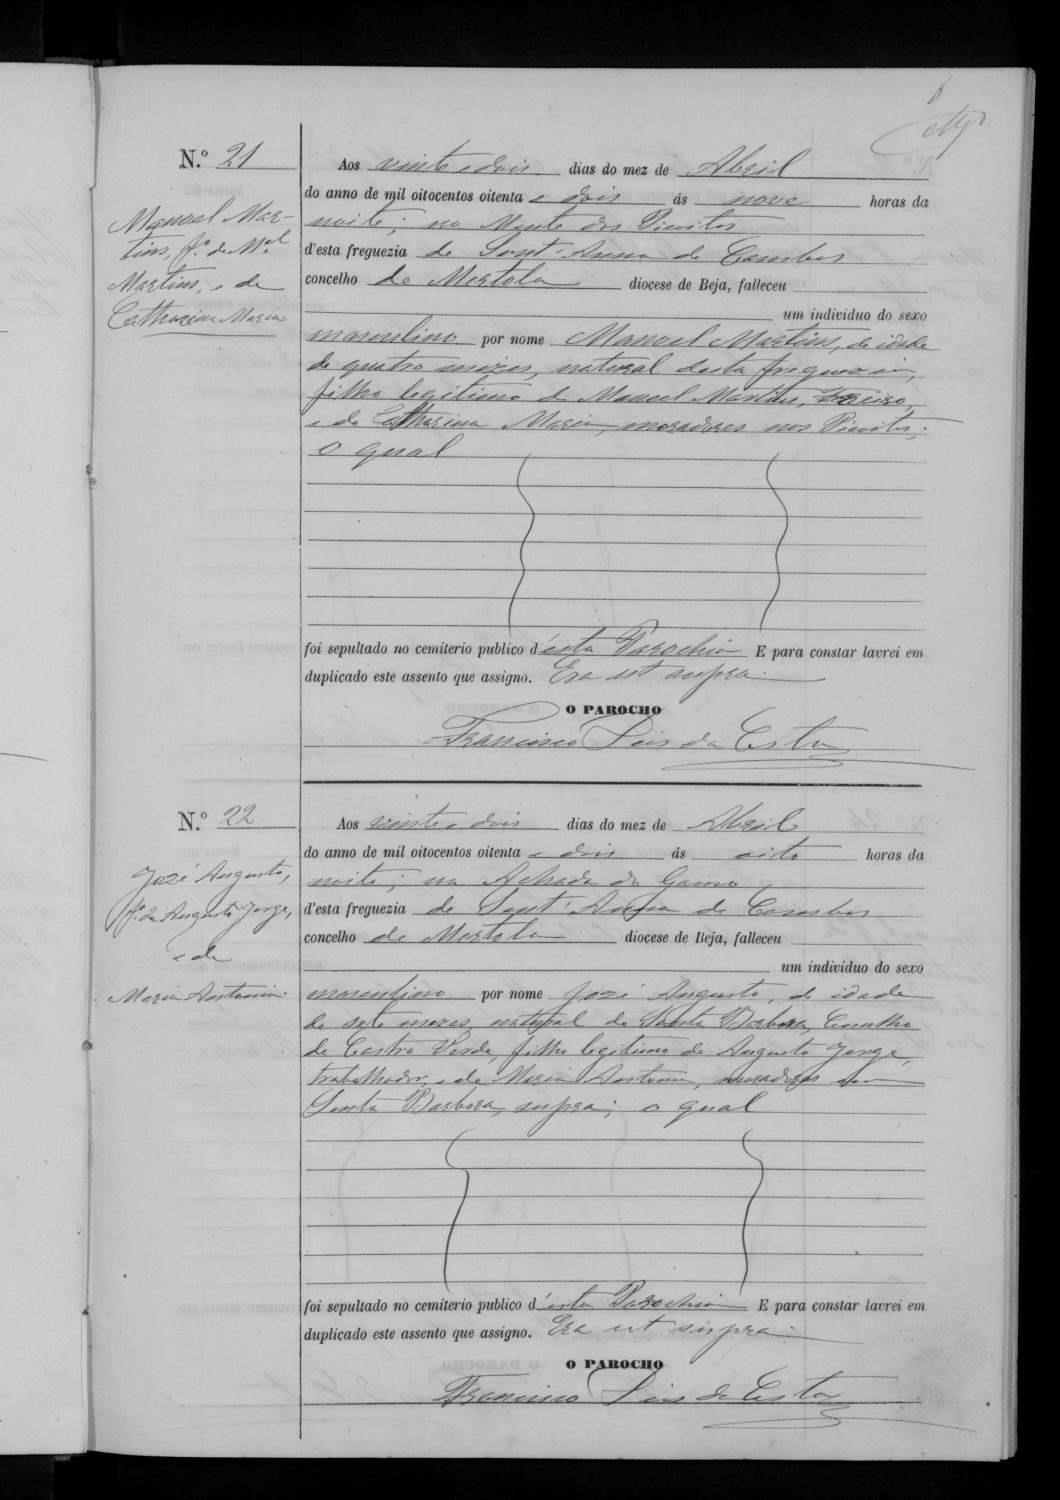 N.º 21
Manoel Mar-
tins, f.º de M.el
Martins, e de
Catharina Maria
Aos vinte e dois dias do mez de Abril
do anno de mil oitocentos oitenta e dois ás nove horas da
noite; no Monte dos
d'esta freguezia de Sant'Anna de Cambas
concelho de Mertola diocese de Beja, falleceu
um individuo do sexo
masculino por nome Manoel Martins, de idade
de quatro mezes, natural desta freguezia,
filho legitimo de Manoel Martins,
e de Catharina Maria, moradores nos
o qual
foi sepultado no cemiterio publico d'esta Parochia E para constar lavrei em
duplicado este assento que assigno. Era ut supra.
O PAROCHO
Francisco
N.º 22
José Augusto,
f.º de Augusto Jorge,
e de
Maria Antonia
Aos vinte e dois dias do mez de Abril
do anno de mil oitocentos oitenta e dois ás oito horas da
noite; na Achada do Gamo
d'esta freguezia de Sant'Anna de Cambas
concelho de Mertola diocese de Beja, falleceu
um individuo do sexo
masculino por nome José Augusto, de idade
de sete mezes, natural de Santa Barbara, Concelho
de Castro Verde, filho legitimo de Augusto Jorge,
trabalhador, e de Maria Antonia, moradores em
Santa Barbara, supra; o qual
foi sepultado no cemiterio publico d'esta Parochia E para constar lavrei em
duplicado este assento que assigno. Era ut supra.
O PAROCHO
Francisco